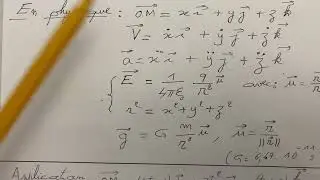 En physique : OM⃗ = x i⃗ + y j⃗ + z k⃗
V⃗ = ẋ i⃗ + ẏ j⃗ + ż k⃗
a⃗ = ẍ i⃗ + ÿ j⃗ + z̈ k⃗
E⃗ = 1/4πε q/r² u⃗ avec : u⃗ = r⃗
r² = x² + y² + z²
g⃗ = G m/r² u⃗ , u⃗ = r⃗/||r⃗||
(G = 6,67. 10
Application